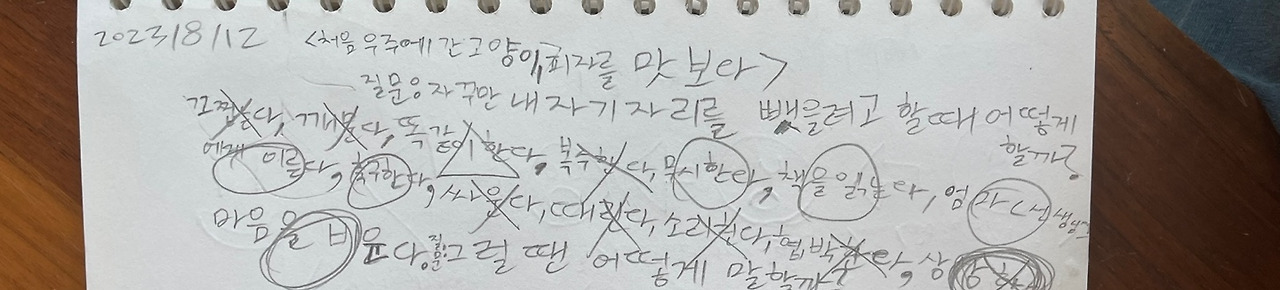 2023/8/12 <처음 우주에 간 고양이, 피자를 맛 보다>
질문 응 자꾸만 내 자기 자리를 뺐을려고 할때 어떻게 할까?
꼬찝는다, 깨문다, 똑같이 한다, 복수한다, 무시한다, 책을 읽는다, 엄마<선생님>
에게 이른다, 축구한다, 싸운다, 때린다, 소리친다, 협박한다, 상
마음을 비운다. 질문: 그럴 땐 어떻게 말할까